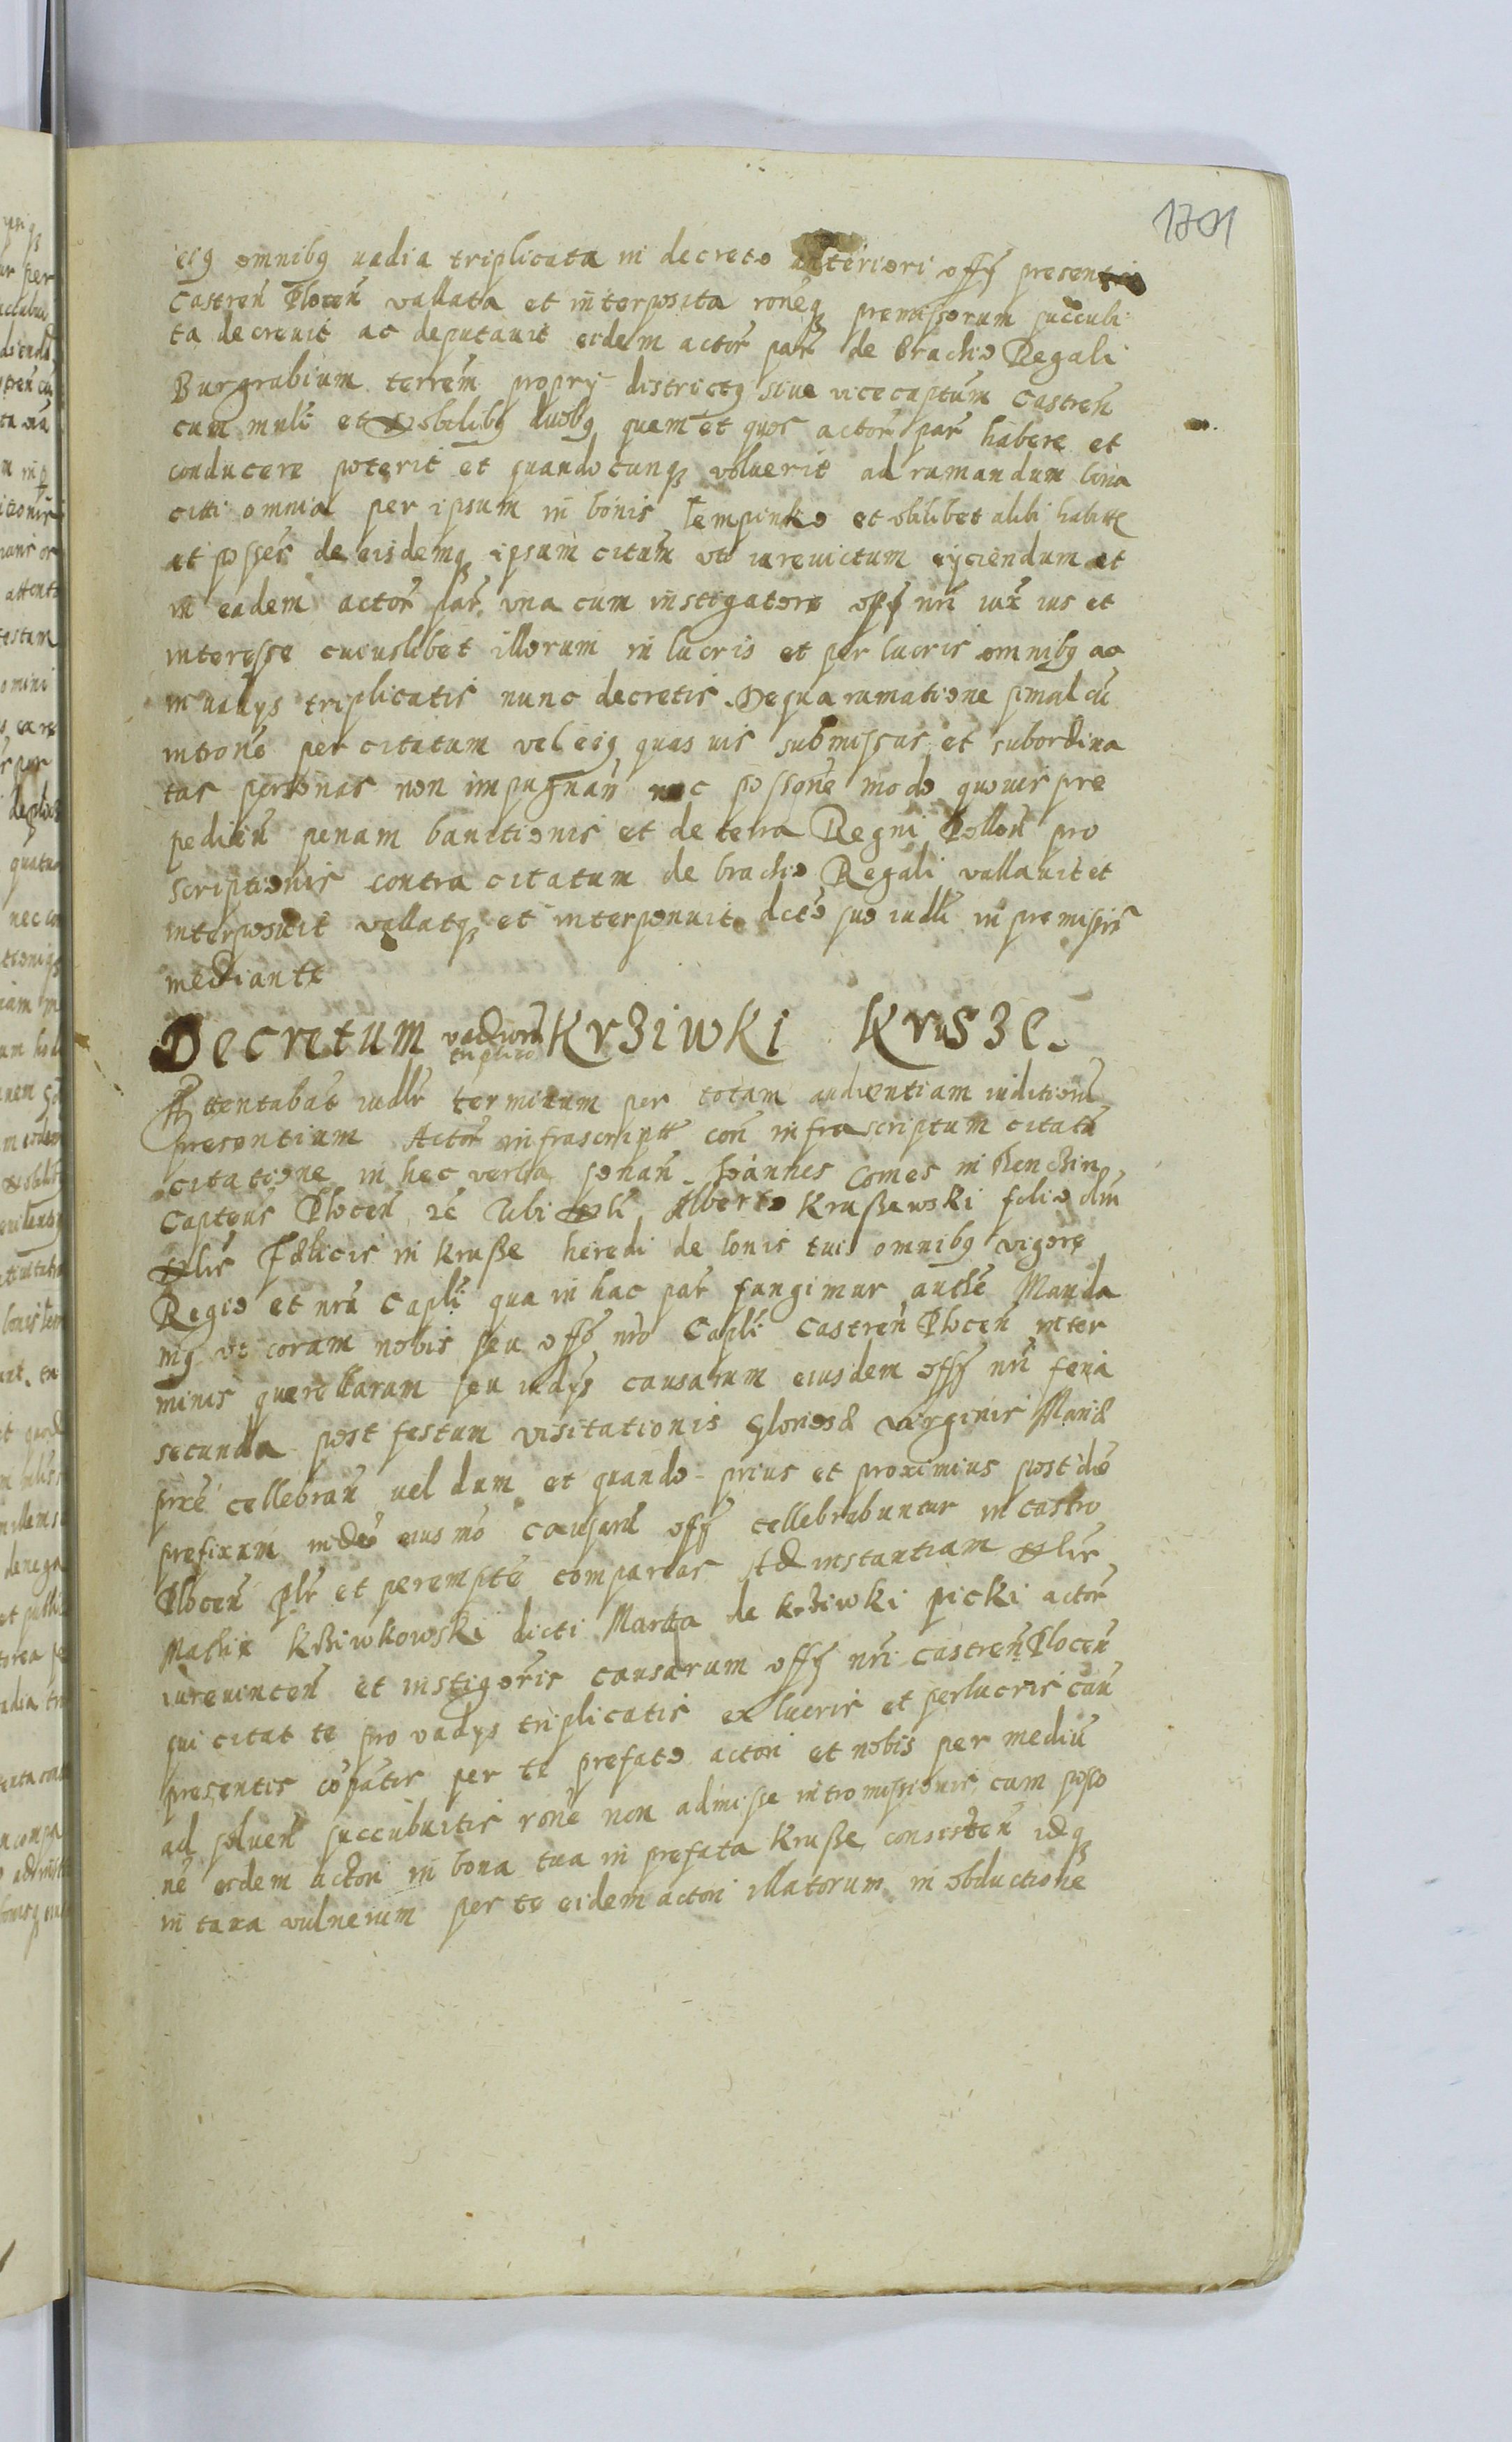 1701
eiꝰ omnibꝰ vadia triplicata in decreto anteriori offῳ presentis
Castreñ Ploceñ vallata et interposita roneqꝫ premissorum succubi
ta decrevit ac deputavit eidem actor̃ par̃ de brachio Regali
Burgrabium terreñ proprij districtꝰ sive vicecaptum Castreñ
cum mnli et Nobilibꝰ duobꝰ quem et quos actor̃ par̃ habere et
conducere poterit et quandocunqꝫ voluerit ad rumandum bona
citti omnia per ipsum in bonis Lempinko et obilibet alibi habita
et posses de eisdemqꝫ ipsum citum uti iurevictum eijciendum et
in eadem actor̃ par̃ una cum instigatore offῳ nri iux ius et
interesse cuiuslibet illorum in lucris et perlucris omnibꝰ ac
in vadys triplicatis nunc decretis. De qua rumatione simul cu
introne per citatum vel eiꝰ quas vis submissas et subordina
tas personas non impugnañ nec possone modo quovis pre
pedieñ penam bannitionis et de terra Regni Polloñ pro
scriptionis contra citatum de brachio Regali vallavit et
interposuit vallatqꝫ et interponuit dcto suo iudli in premissis
mediante
Decretum vadiorũ triplico Krziwki Krusze.
Attentabat iudlr terminum per totam audientiam iuditiorũ
presentium Actor̃ infrascriptꝰ con infrascriptum citatũ
citatione in hec verba sonañ. Joannes Comes in Tenczin
Capteus Ploceñ ꝛc Tibi Nbli Alberto Krußewski filio olim
Nblis Fœlicis in Kruße heredi de bonis tuis omnibꝰ vigore
Regio et nra Capli qua in hac par̃ fungimur authe Manda
mꝰ ut coram nobis seu offo nro Capli Castreñ Ploceñ in ter
minis querellarum seu iudys causarum eiusdem offῳ nri feria
secunda post festum visitationis Glorios& virginis Mari&
prxe cellebrañ vel dum et quando prius et proximius post die
prefixum iudcio eiusmo causarũ offῳ cellebrabuntur in castro
Ploceñ plr et perempte compareas Ad instantiam Nblis
Mathie Krziwkowski dicti Marcha de Krziwki picki actor̃
iurevinceñ et instigoris causarum offῳ nri castreñ Ploceñ
qui citat te pro vadys triplicatis ex lucris et perlucris cau
presentis copatis per te prefato actori et nobis per mediũ
ad solueñ succubuitis rone non admisse intromissionis cum posso
ne eidem actori in bona tua in prefata Kruße consisteñ idqꝫ
in taxa vulnerum per te eidem actori illatorum in obductione